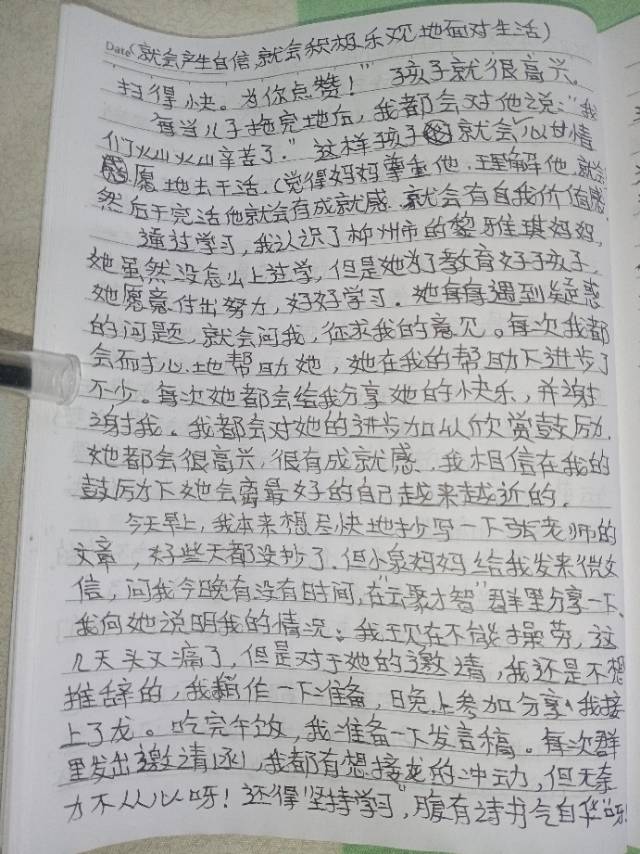 Date (就会产生自信,就会积极乐观地面对生活)
扫得快。为你点赞!" 孩子就很高兴。
每当儿子拖完地后,我都会对他说:"我
们火山火山辛苦了." 这样孩子就会心甘情
愿地去干活.(觉得妈妈尊重他.理解他,就会
然后干完活他就会有成就感.就会有自我价值感
通过学习,我认识了柳州市的黎雅琪妈妈,
她虽然没怎么上过学,但是她为了教育好子孩子,
她愿意付出努力,好好学习.她每每遇到疑惑
的问题,就会问我,征求我的意见。每次我都
会耐心地帮助她,她在我的帮助下进步了
不少。每次她都会给我分享她的快乐,并谢
谢我。我都会对她的进步加以欣赏鼓励.
她都会很高兴,很有成就感.我相信在我的
鼓励下她会离最好的自己越来越近的.
今天早上,我本来想尽快地抄写一下张老师的
文章,好些天都没抄了.但小泉妈妈给我发来微
信,问我今晚有没有时间,在"云聚才智"群里分享一下.
我向她说明我的情况:我现在不能操劳,这
几天头又痛了,但是对于她的邀请,我还是不想
推辞的,我稍作一下准备,日晚上参加分享,我接
上了龙。吃完午饭,我准备一下发言稿。每次群
里发出邀请函,我都有想接龙的冲动,但无奈
力不从心呀!还得"坚持学习",腹有诗书气自华"呀!